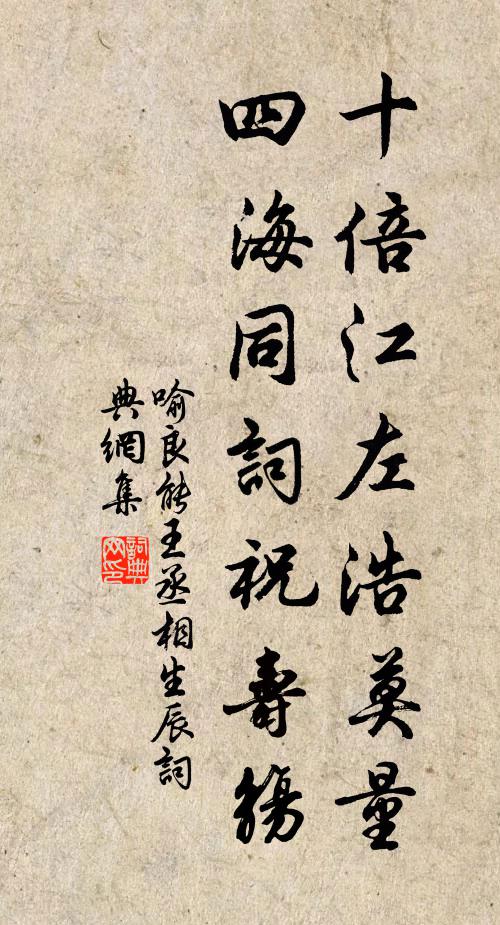 十倍江左浩莫量
四海同詞祝壽觴
喻良能王丞相生辰詞
典網集
詞典网印